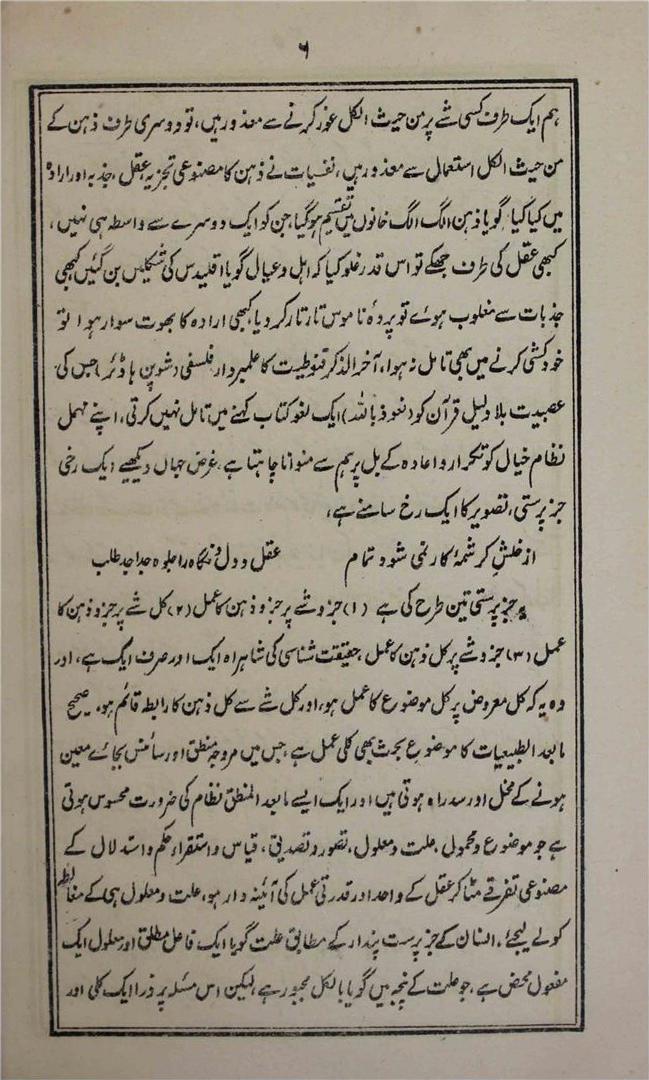 ۶
ہم ایک طرف کسی شے پر من حیث الکل غور کرنے سے معذور ہیں، تو دوسری طرف ذہن کے
من حیث الکل استعمال سے معذور ہیں، نفسیات نے ذہن کا مصنوعی تجزیہ عقل، جذبہ اور ارادہ
میں کیا کیا گویا ذہن الگ الگ خانوں میں تقسیم ہوگیا، جن کو ایک دوسرے سے واسطہ ہی نہیں،
کبھی عقل کی طرف جھکے تو اس قدر غلو کیا کہ اہل و عیال گویا اقلیدس کی شکلیں بن گئیں کبھی
جذبات سے مغلوب ہوے تو پردۂ ناموس تار تار کر دیا، کبھی ارادہ کا بھوت سوار ہوا تو
خودکشی کرنے میں بھی تامل نہ ہوا، آخر الذکر قنوطیت کا علمبردار فلسفی (شوپن ہاؤئر) جس کی
عصبیت بلا دلیل قرآن کو (نعوذ باللہ) ایک لغو کتاب کہنے میں تامل نہیں کرتی، اپنے مہمل
نظام خیال کو تکرار و اعادہ کے بل پر ہم سے منوانا چاہتا ہے، غرض جہاں دیکھیے ایک رخی
جز پرستی، تصویر کا ایک رخ سامنے ہے،
از خلش کرشمۂ کار نمی شود تمام عقل و دل و نگاہ را جلوہ جدا جدا طلب
یہ جز پرستی تین طرح کی ہے (۱) جزو شے پر جزو ذہن کا عمل (۲) کل شے پر جزو ذہن کا
عمل (۳) جزو شے پر کل ذہن کا عمل، حقیقت شناسی کی شاہراہ ایک اور صرف ایک ہے، اور
وہ یہ کہ کل معروض پر کل موضوع کا عمل ہو، اور کل شے سے کل ذہن کا رابطہ قائم ہو، صحیح
مابعد الطبیعیات کا موضوع بحث بھی کلی عمل ہے، جس میں مروجہ منطق اور سائنس بجائے معین
ہونے کے مخل اور سد راہ ہوتی ہیں اور ایک ایسے مابعد المنطق نظام کی ضرورت محسوس ہوتی
ہے جو موضوع و محمول، علت و معلول، تصور و تصدیق، قیاس و استقراء حکم و استدلال کے
مصنوعی تفرقے مٹا کر عقل کے واحد اور قدرتی عمل کی آئینہ دار ہو، علت و معلول ہی کے مغالطہ
کو لے لیجئے، انسان کے جز پرست پندار کے مطابق علت گویا ایک فاعل مطلق اور معلول ایک
مفعول محض ہے، جو علت کے پنجہ میں گویا بالکل مجبور ہے، لیکن اس مسئلہ پر ذرا ایک کلی اور